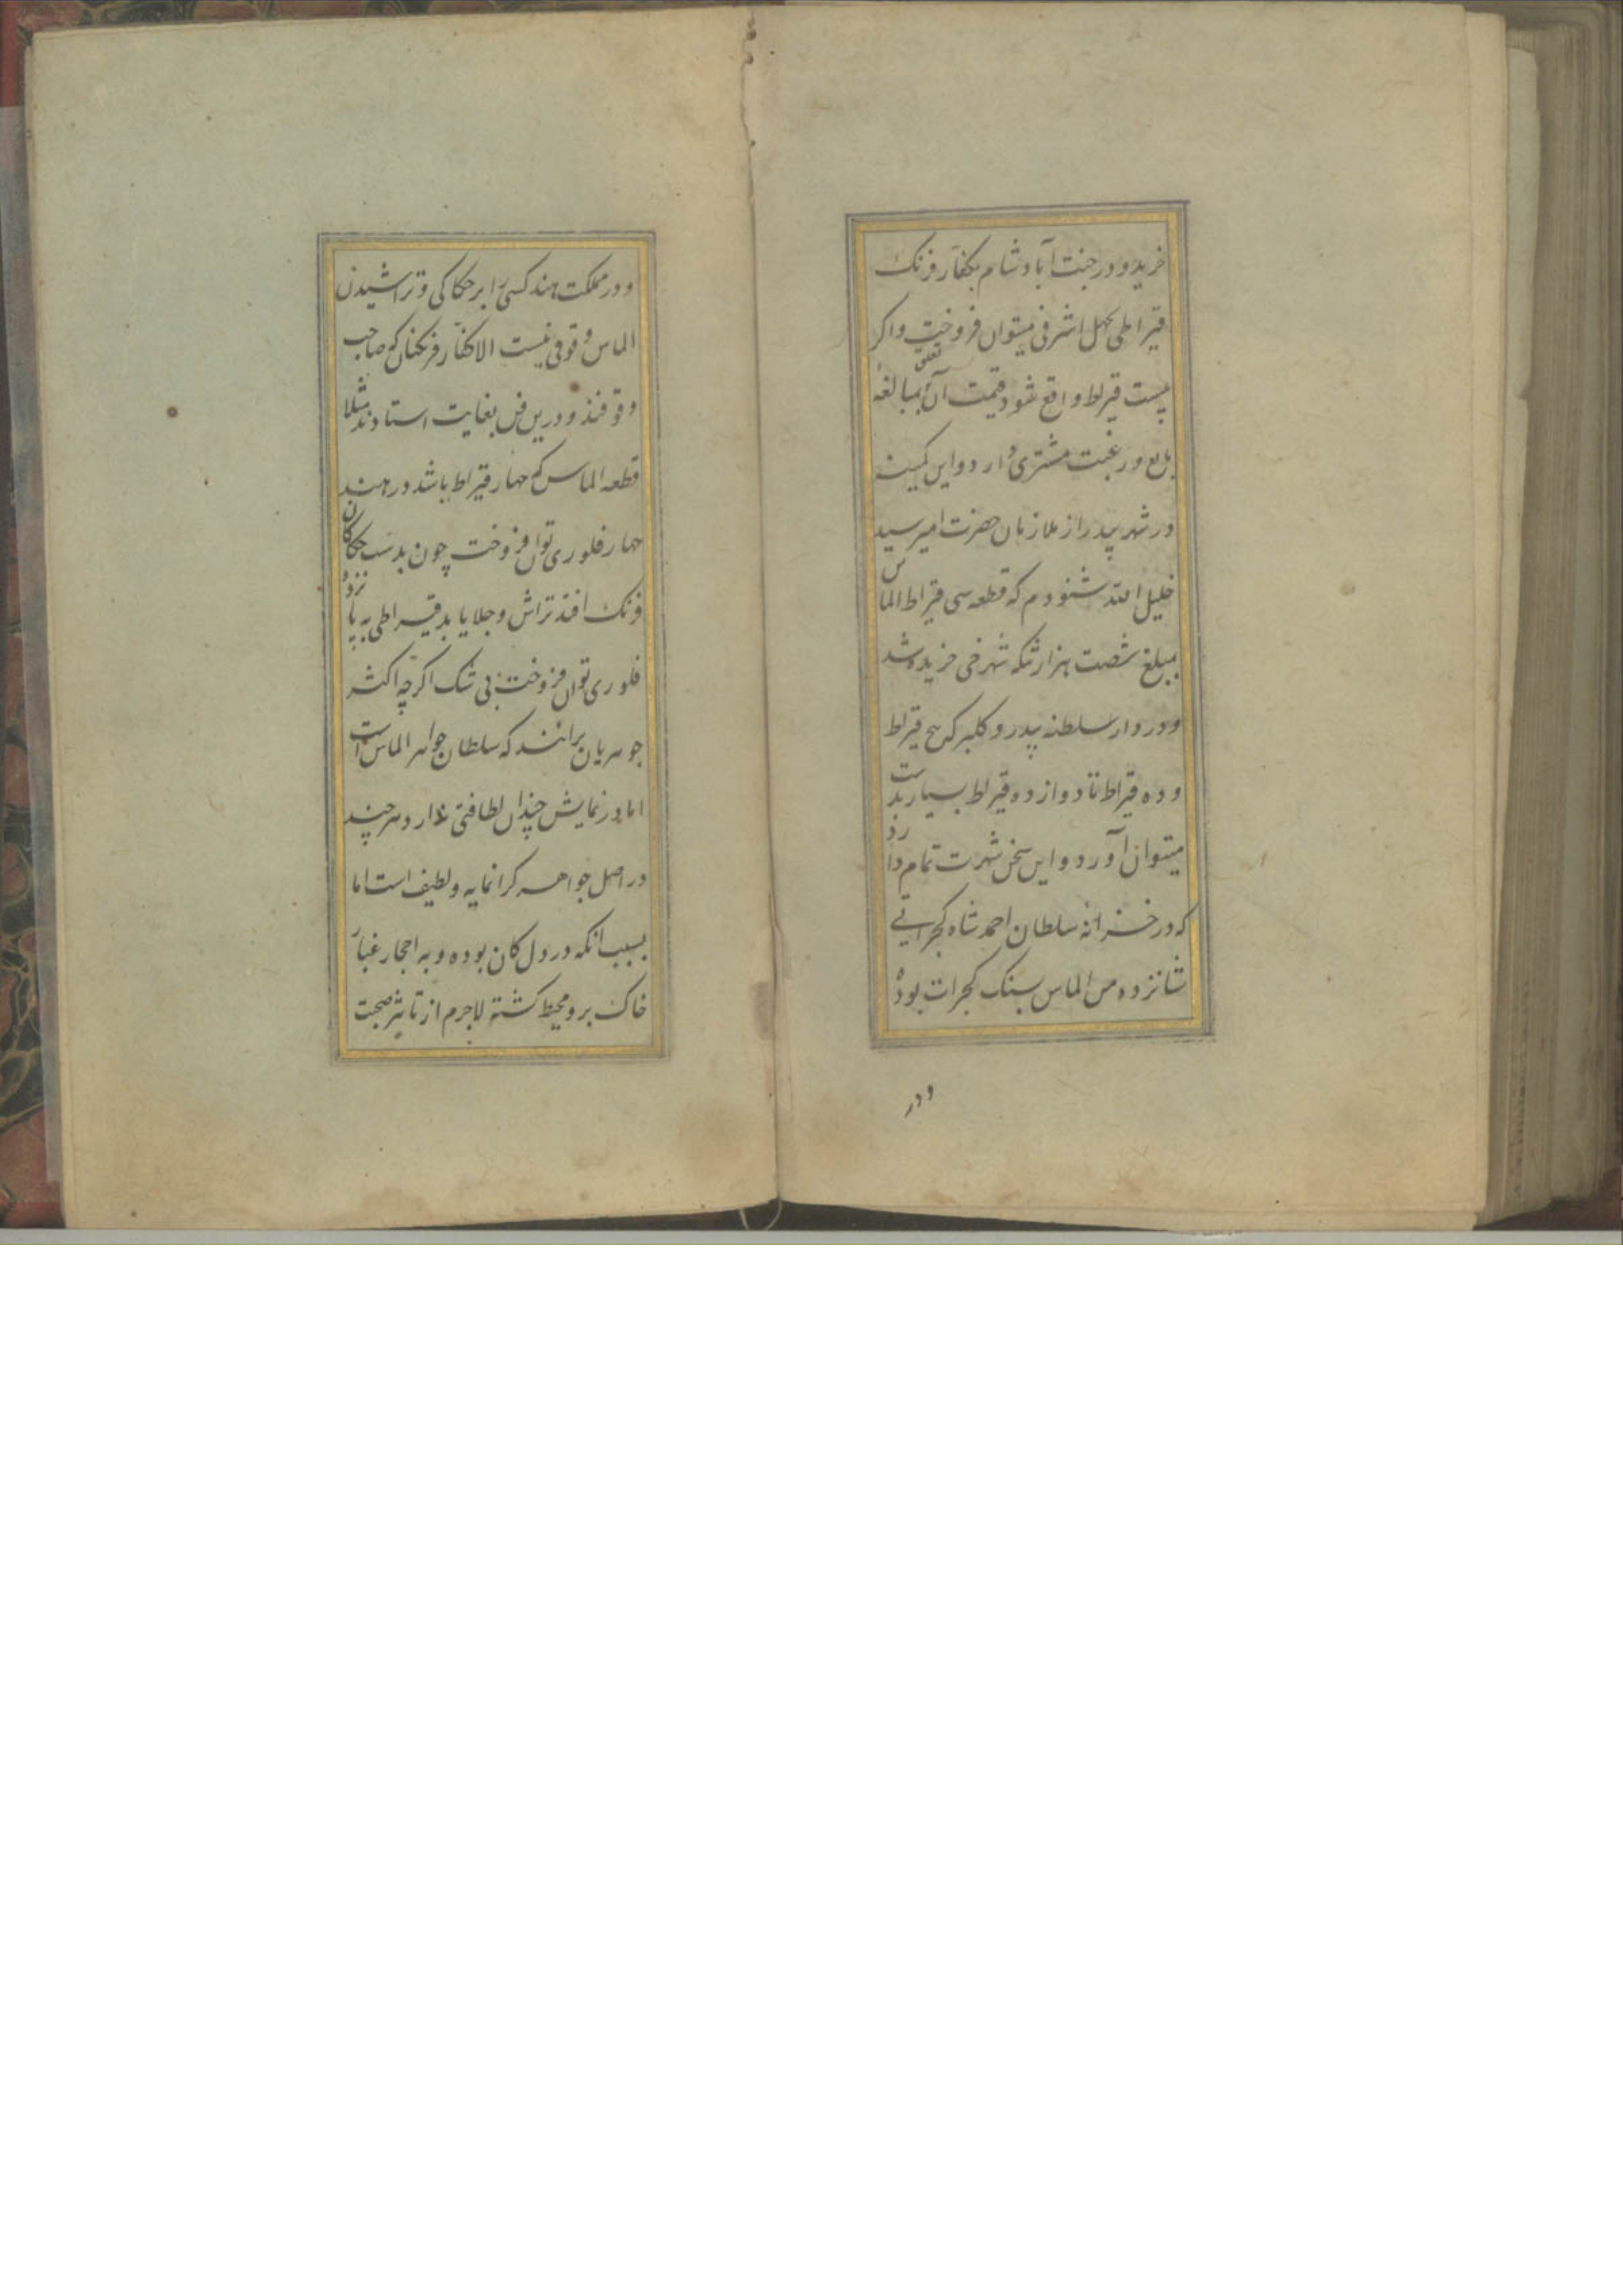 خرید و در جنت آباد شام بکفار فرنک
قیراطی بچهل اشرفی میتوان فروخت واکر
بیست قیراط واقع شود قیمت آن تعلق بمبالغهٔ
بایع و رغبت مشتری دارد و این کمینه
در شهر بیدر از ملازمان حضرت امیر سید
خلیل الله شنودم که قطعه سی قیراط الماس
بمبلغ شصت هزار تنکه شهرخی خریده شد
و در دار سلطنه بیدر و کلبرکه پنج قیراط
و ده قیراط تا دوازده قیراط بسیار بدست
میتوان آورد و این سخن شهرت تمام دارد
که در خزانه سلطان احمد شاه کجراتی
شانزده من الماس بسنک کجرات بوده
ودر
و در مملکت هند کسی را بر حکاکی و تراشیدن
الماس وقوفی نیست الا کفار فرنک که صاحب
وقوفند و درین فن بغایت استادند مثلا
قطعه الماس که چهار قیراط باشد در هند
چهار فلوری توان فروخت چون بدست حکاکان
فرنک افتد تراش و جلا یابد قیراطی به پانزده
فلوری توان فروخت بی شک اکرچه اکثر
جوهریان برانند که سلطان جواهر الماس است
اما در نمایش چندان لطافتی ندارد هر چند
در اصل جواهر کرانمایه و لطیف است اما
بسبب انکه در دل کان بوده و به احجار غبار
خاک برو محیط کشته لاجرم از تاثیر صحبت